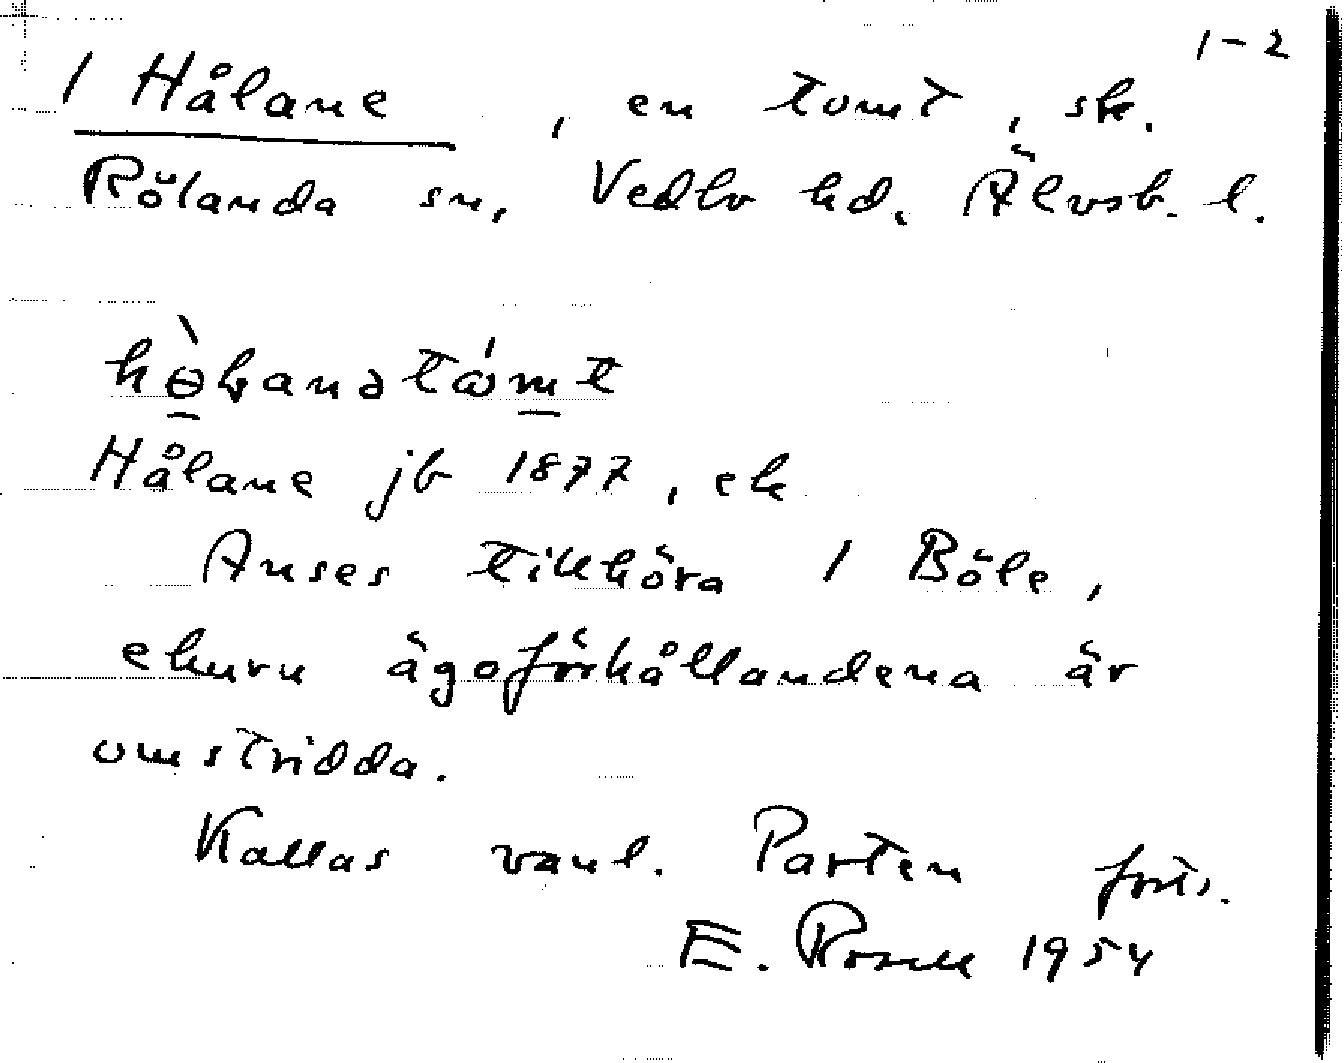 1-2
1 Hålane, en tomt, sk.
Rölanda sn, Vedbo hd. Älvsb. l.
Hålane jb 1877, ek
Anses tillhöra 1 Böle,
ehuru ägoförhållandena är
omstridda.
Kallas vanl. Parten forts.
E. Rosell 1954